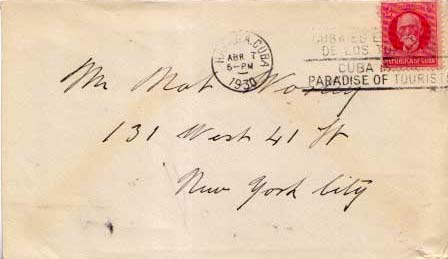 HABANA, CUBA
ABR 7
5-PM
193
CUBA ES E
DE LOS TU
CUBA
PARADISE OF TOURIST
REPUBLICA DE CUBA
Mr Mat
131 West 41 St
New York City